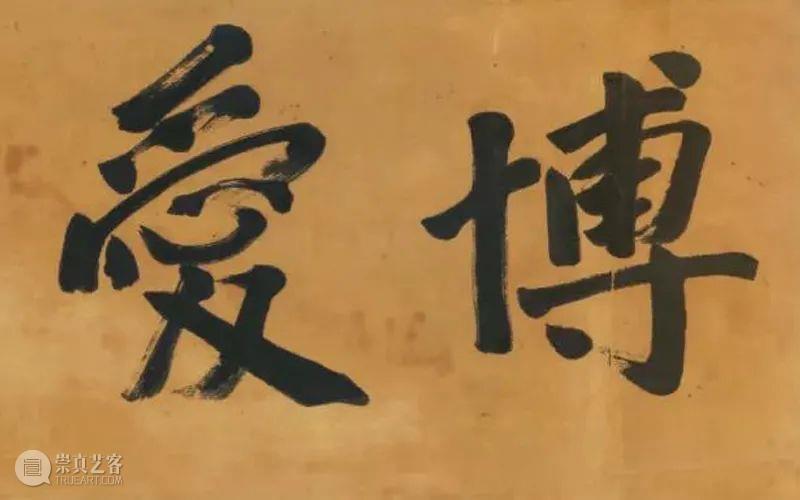 博愛
崇真艺客
WWW.TRUEART.COM